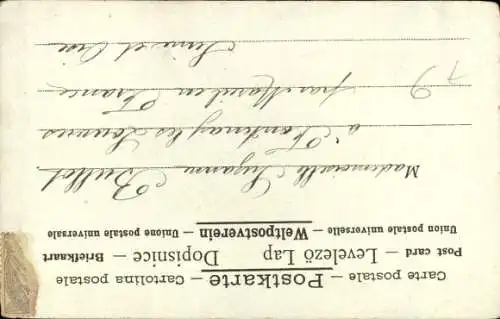 Carte postale — Postkarte — Cartolina postale
Post card — Levelező Lap Dopisnice — Briefkaart
Union postale universelle — Weltpostverein — Unione postale universale
Mademoiselle Suzanne Bullot
à Fontenay les Louvres
par Marcil en France
Seine et Oise